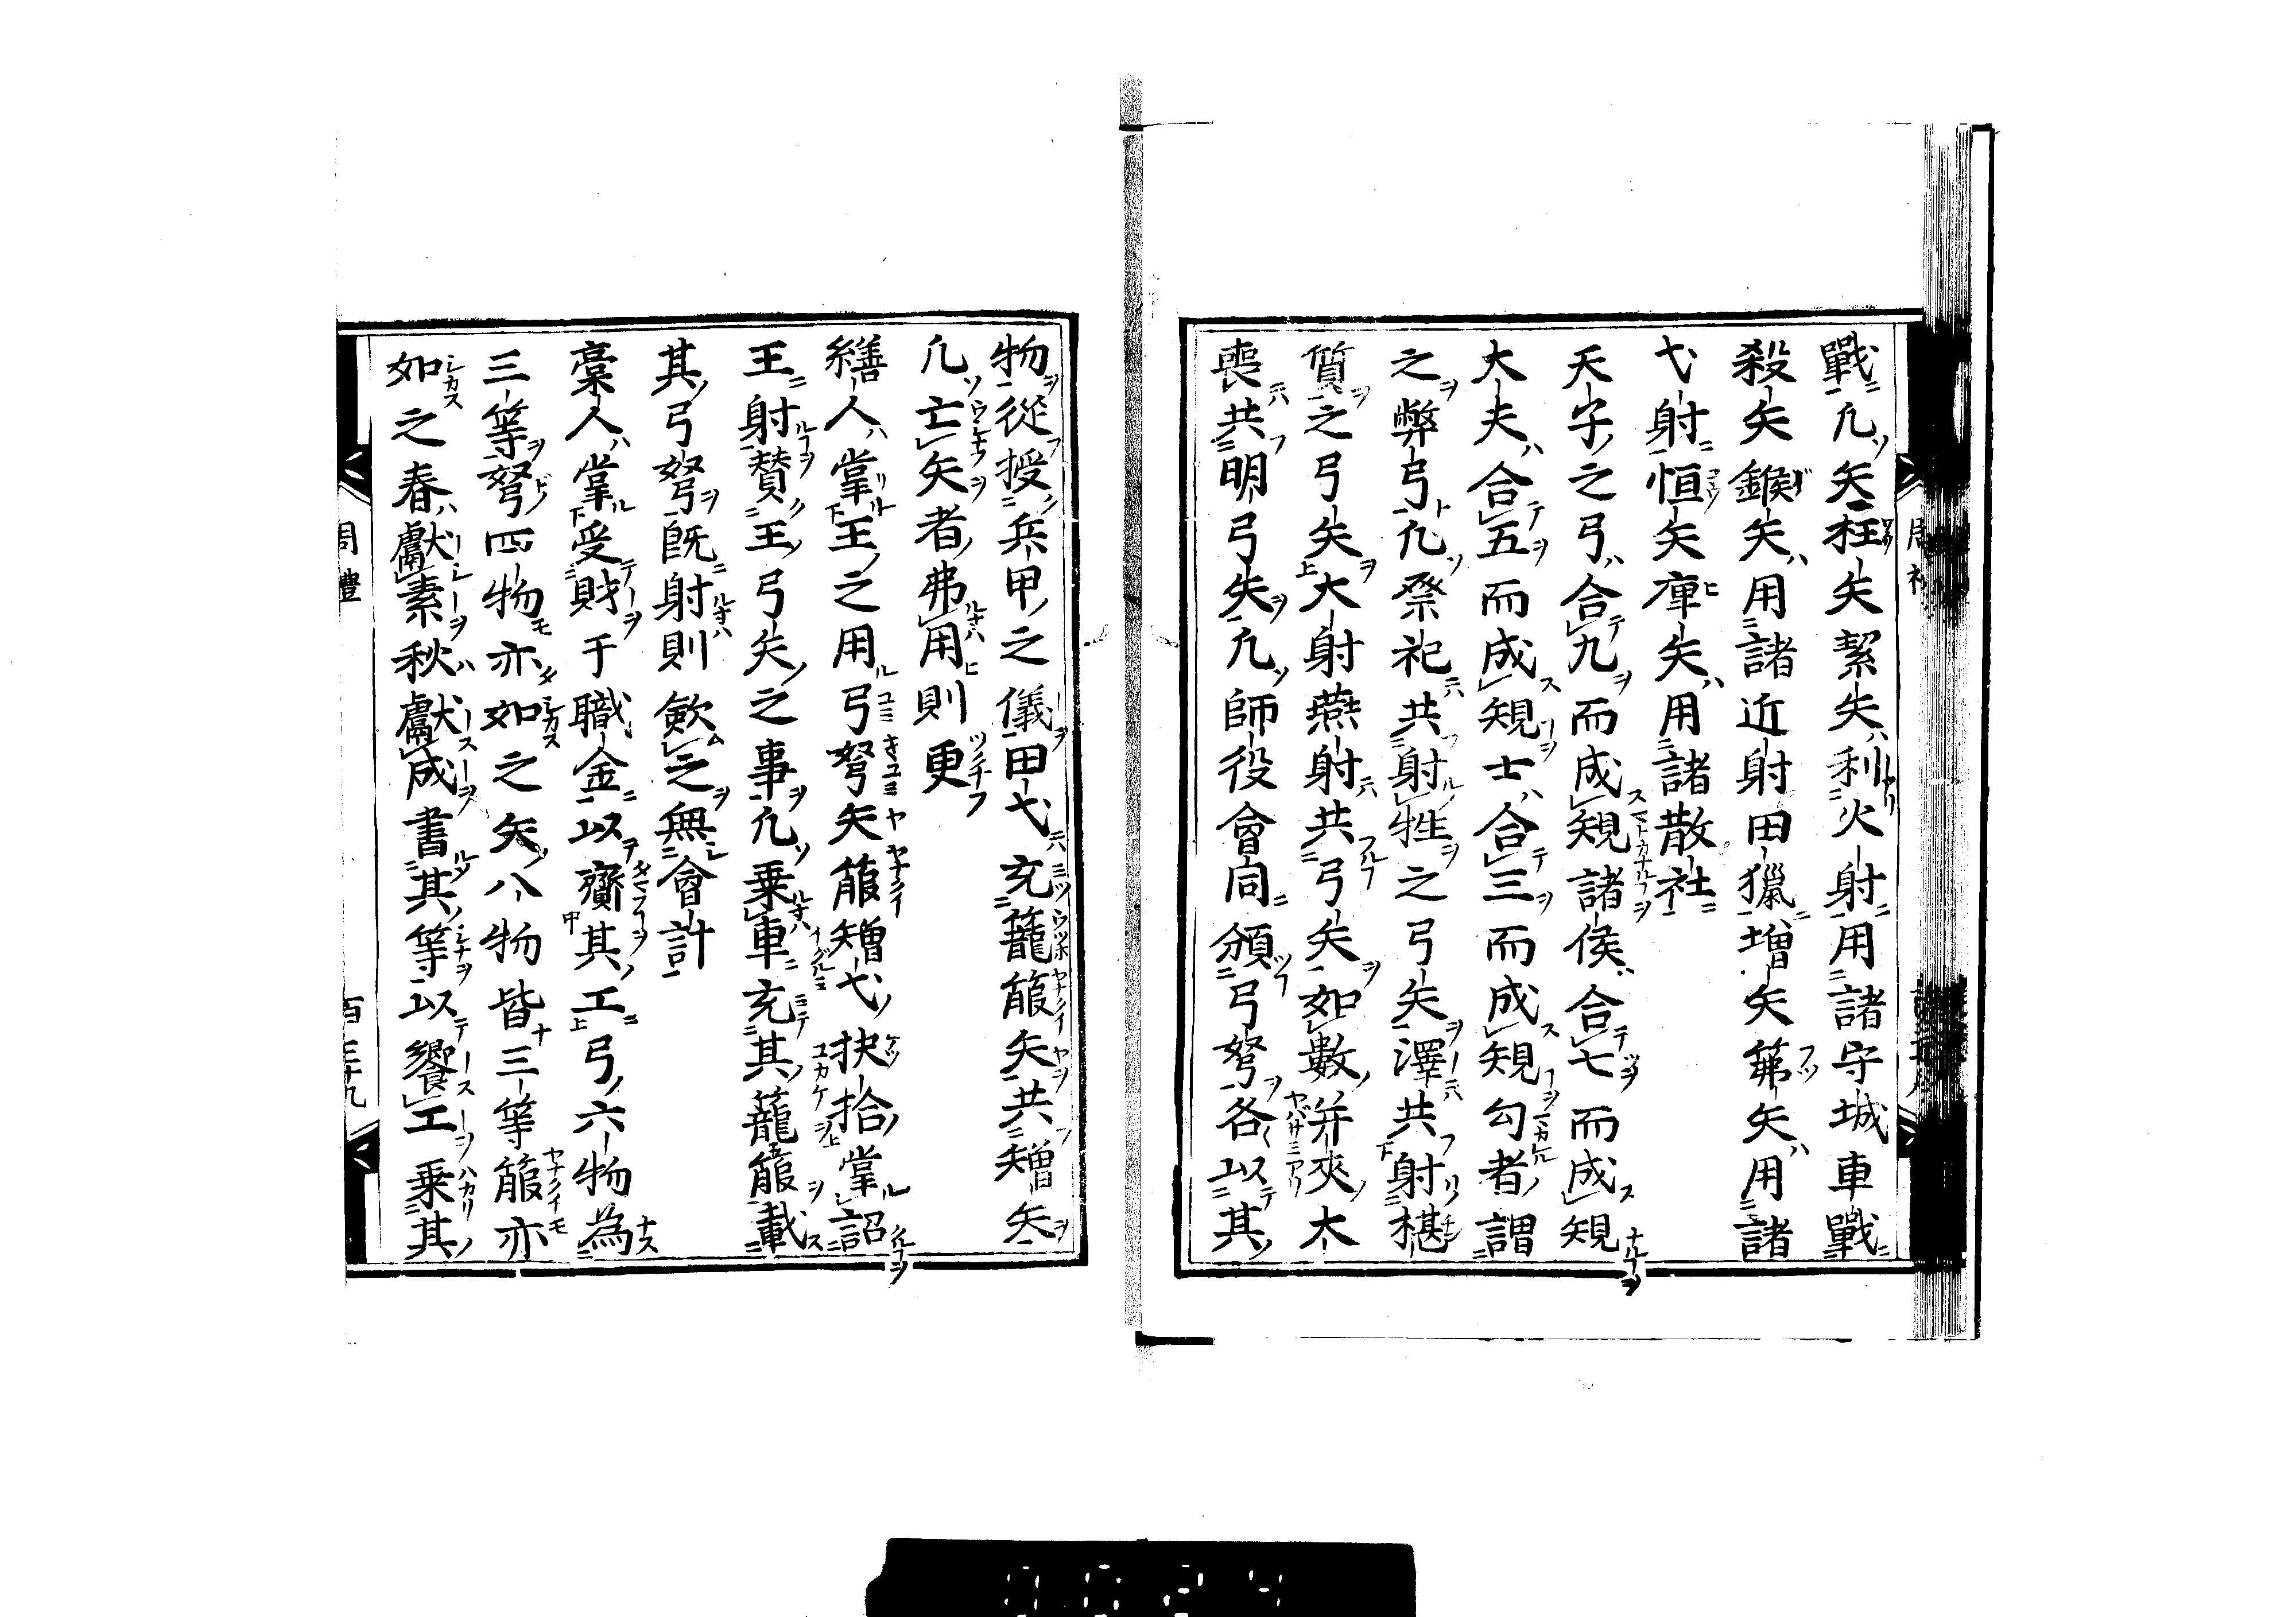 戰凢矢枉矢絜矢利火射用諸守城車戰
殺矢鍭矢用諸近射田獵矰矢茀矢用諸
弋射恒矢庳矢用諸散社
天子之弓合九而成規諸侯合七而成規
大夫合五而成規士合三而成規勾者謂
之弊弓凢祭祀共射牲之弓矢澤共射椹
質之弓矢大射燕射共弓矢如數并夾大
喪共明弓矢凢師役會同頒弓弩各以其
物從授兵甲之儀田弋充籠箙矢共矰矢
凢亡矢者弗用則更
繕人掌王之用弓弩矢箙矰弋抉拾掌詔
王射賛王弓矢之事凢乗車充其籠箙載
其弓弩旣射則斂之無會計
槀人掌受財于職金以齎其工弓六物為
三等弩四物亦如之矢八物皆三等箙亦
如之春獻素秋獻成書其等以饗工乗其
周禮
百三十九